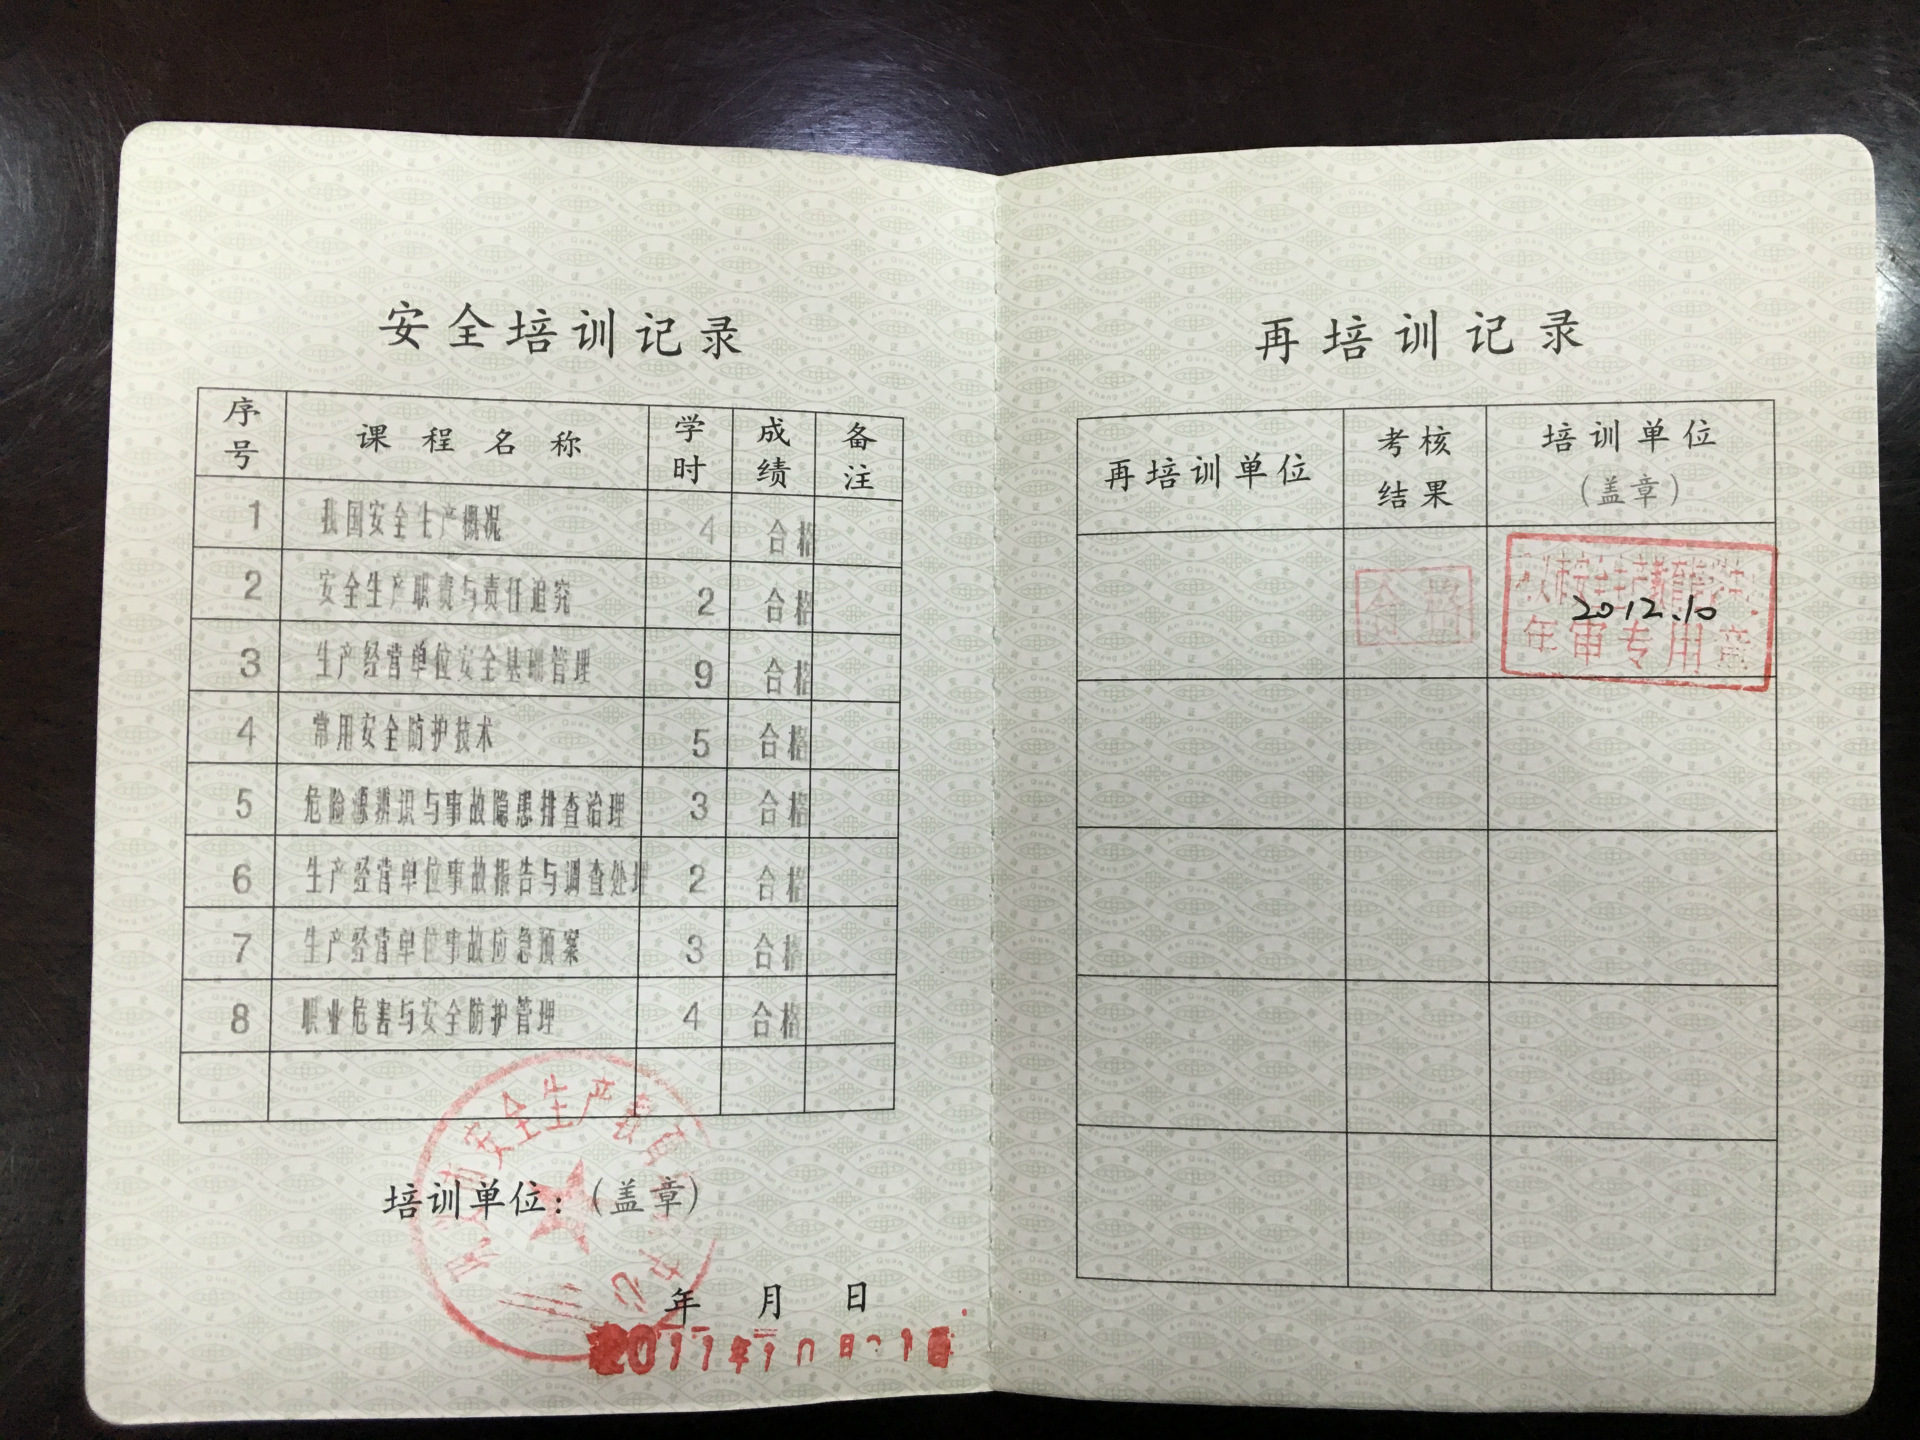 安全培训记录
序号 课程名称 学时 成绩 备注
1 我国安全生产概况 4 合格
2 安全生产职责与责任追究 2 合格
3 生产经营单位安全基础管理 9 合格
4 常用安全防护技术 5 合格
5 危险源辨识与事故隐患排查治理 3 合格
6 生产经营单位事故报告与调查处理 2 合格
7 生产经营单位事故应急预案 3 合格
8 职业危害与安全防护管理 4 合格
安全生产教育
培训单位：（盖章）
年 月 日
再培训记录
再培训单位 考核结果 培训单位（盖章）
合格
市安全生产教育
2012.10
年审专用章